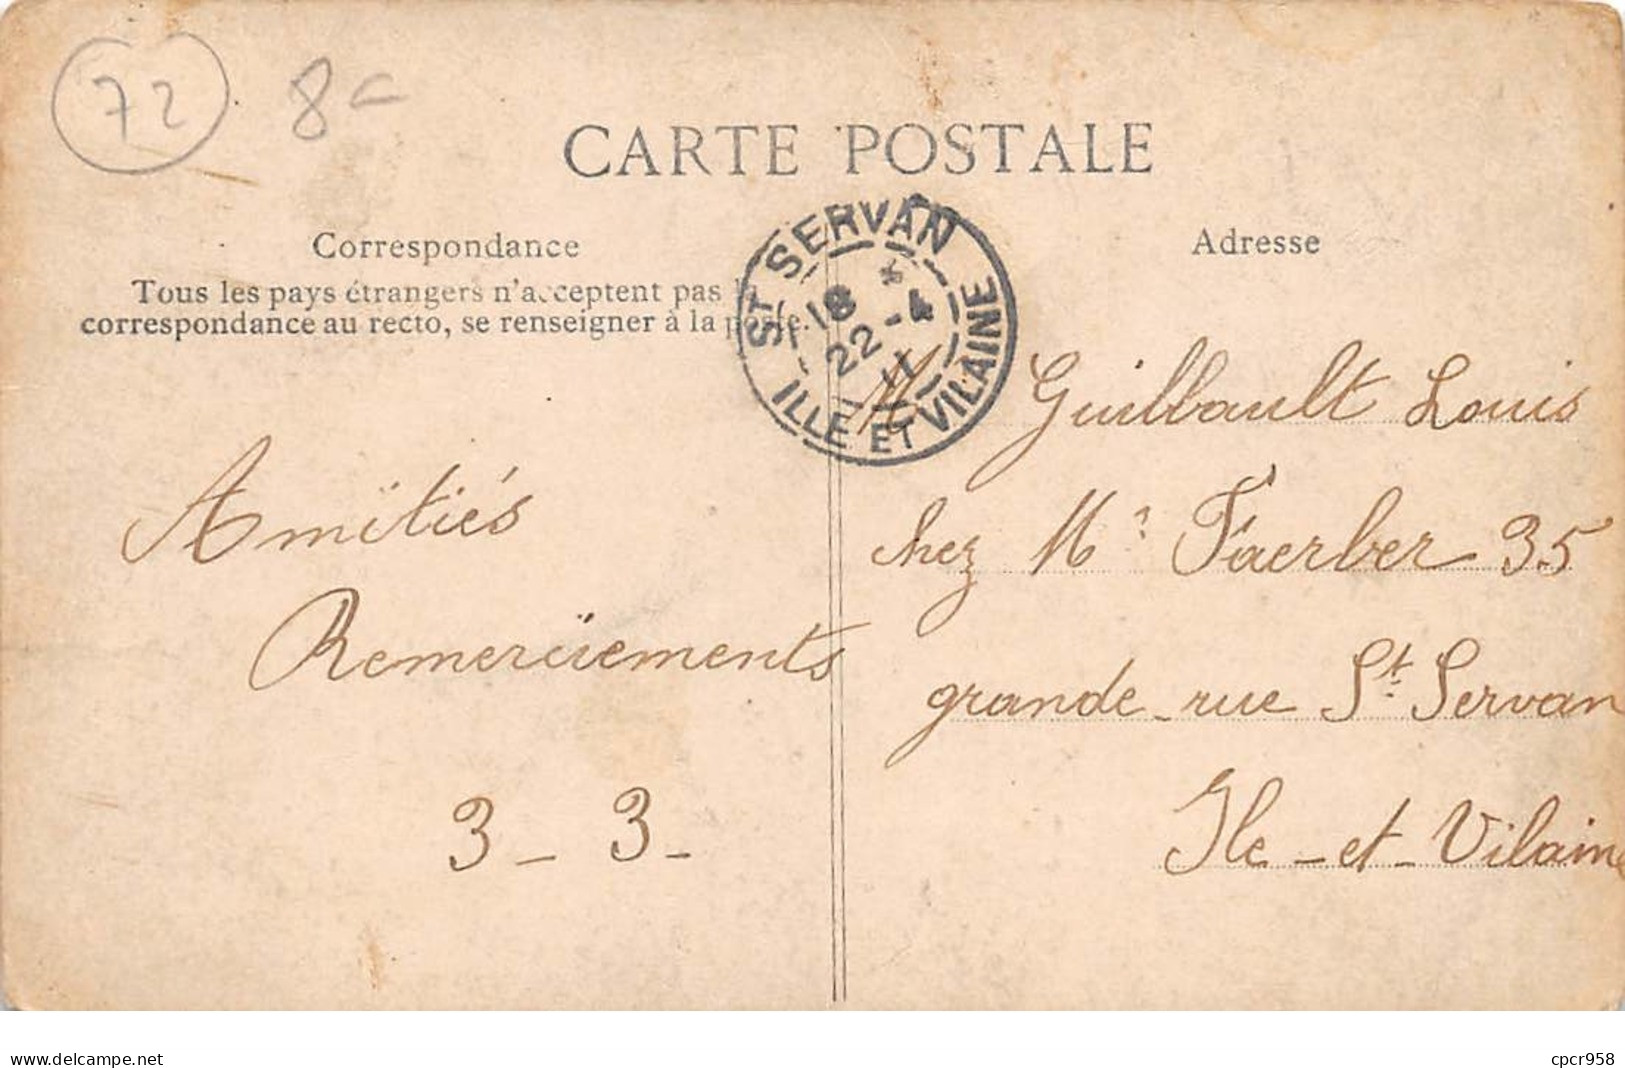 72 8
CARTE POSTALE
Correspondance
Tous les pays étrangers n'acceptent pas la
correspondance au recto, se renseigner à la poste.
Adresse
ST SERVAN
18 *
22 - 4
11
ILLE ET VILAINE
M Guillbault Louis
chez Mr Faerber 35
grande rue St Servan
Ile - et - Vilaine
Amitiés
Remerciements
3 - 3 -
www.delcampe.net
cpcr958